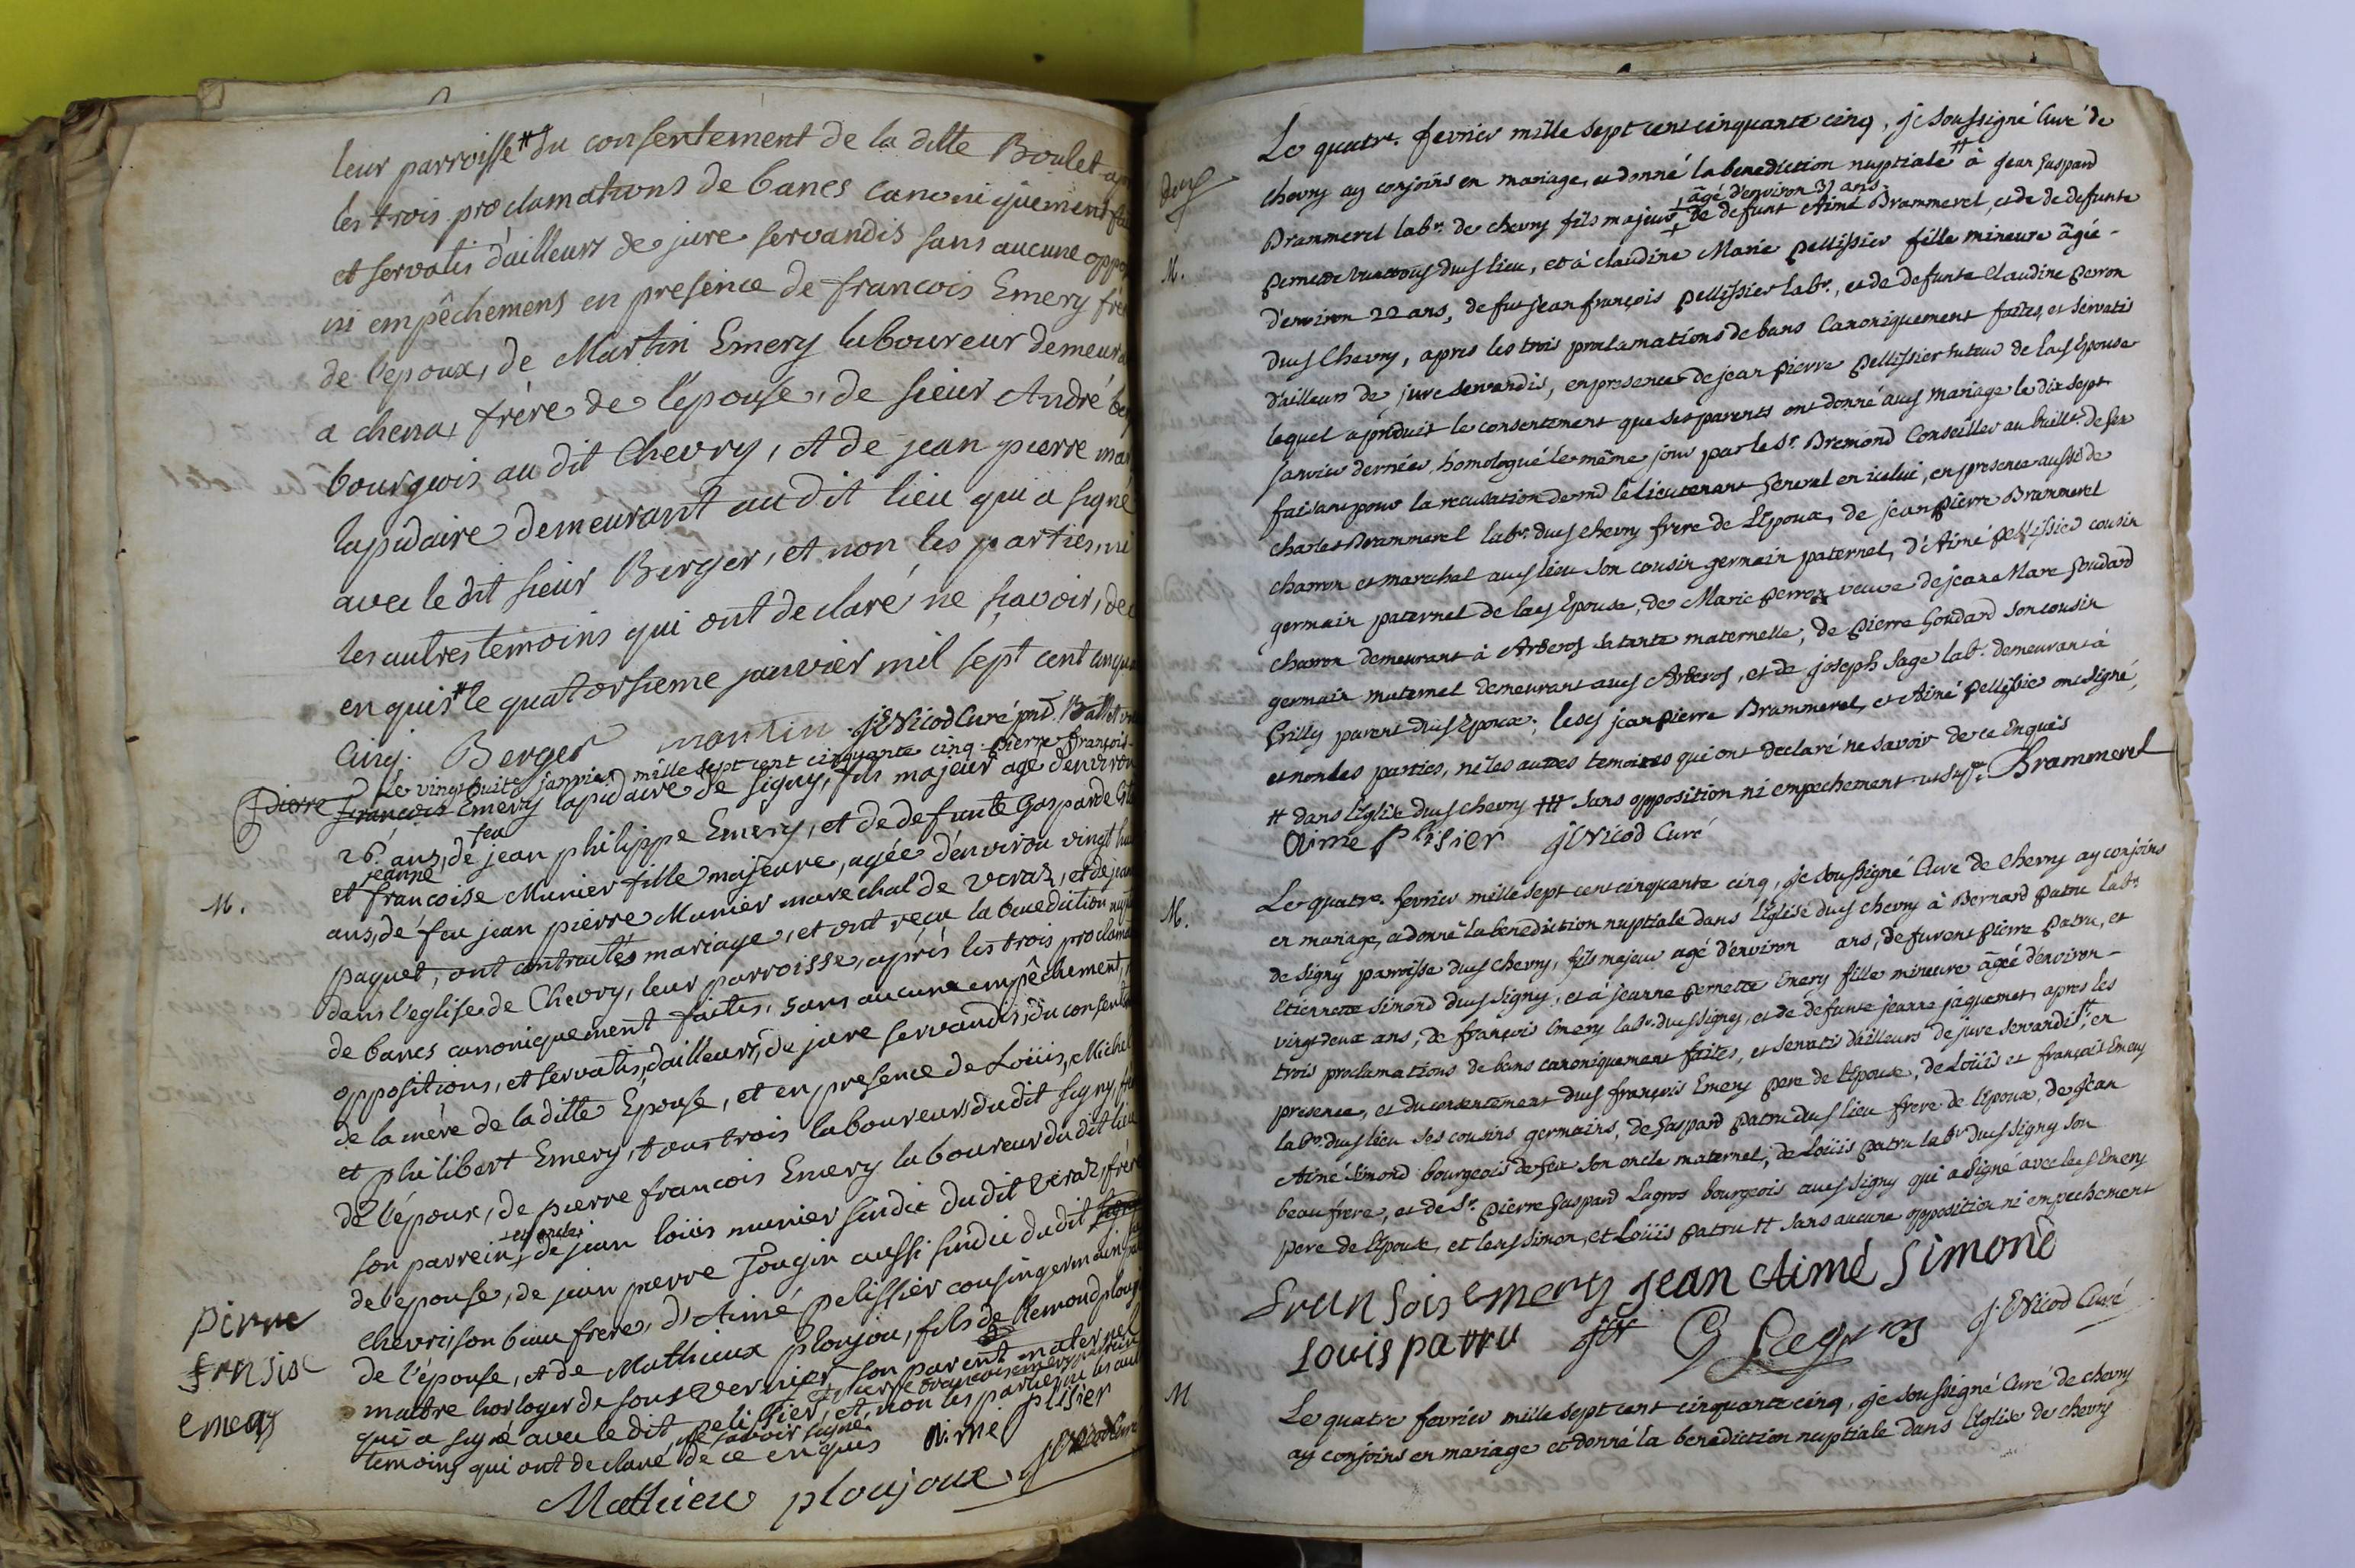 leur parroisse # du consentement de la ditte Boulet
les trois proclamations de bancs canoniquement
et servatis d'ailleurs de jure servandis sans aucune
ni empêchemens en presence de francois Emery
de l'epoux, de Martin Emery laboureur
a frere de l'epouse, de sieur André
bourgeois au dit Chevry, et de jean pierre
lapidaire demeurant au dit lieu qui a signé
avec le dit sieur Berger, et non les parties, ni
les autres temoins qui ont declaré ne sçavoir, de
enquis # le quatorsieme janvier mil sept cent
Cinq. Berger martin jE Nicod Curé
Le vingt huite janvier mille sept cent cinquante cinq. pierre françois
pierre francois Emery lapidaire de Signy, fils majeur agé d'environ
26. ans, de feu jean philippe Emery, et de defunte Gasparde
et jeanne francoise Munier fille majeure, agée d'environ vingt
ans, de feu jean pierre Munier marechal de Veraz, et de
paquet, ont contractés mariage, et ont reçu la benediction
dans l'eglise de Chevry, leur parroisse, aprés les trois
de bancs canoniquement faites, sans aucun empêchement,
oppositions, et servatis d'ailleurs, de jure servandis, du
de la mére de la ditte Epouse, et en presence de Loüis, Michel
et philibert Emery, tous trois laboureurs du dit Signy,
de l'époux, de pierre francois Emery laboureur du dit lieu
son parrein, et oncle, de jean loüis munier sindic du dit Veraz, frere
de l'epouse, de jean pierre Fougin aussi sindic du dit
chevri son beau frere, d'Aimé pelissier cousin germain
de l'épouse, et de Mathieux Ploujou, fils de Remond
maitre horloger de sous Vernier son parent maternel
pierre francois emery parrain
qui a signé avec le dit pelissier, et non les parties ni les
temoins qui ont declaré ne savoir signé de ce enquis aimé plisier
Mathieu ploujoux jE Nicod Curé
M.
pierre
fransise
emery
Le quatre. fevrier mille sept cent cinquante cinq, je soussigné Curé de
chevry ay conjoins en mariage, et donné la benediction nuptiale # à jean Gaspard
Brammerel labr. de chevry fils majeur âgé d'environ 37 ans de defunt Aimé Brammerel, et de defunte
dud lieu, et à claudine Marie pellissier fille mineure âgée
d'environ 22 ans, de fut jean françois pellissier labr., et de defunte Claudine perron
dud Chevry, apres les trois proclamations de bans Canoniquement faites, et servatis
d'ailleurs de jure servandis, en presence de jean pierre pellissier tuteur de lad Epouse
lequel a produit le consentement que ses parents ont donné aud mariage le dix sept
janvier dernier, homologué le même jour par le Sr. Bremond Conseiller au baillr. de Gex
faisant pour la recusation de md le Lieutenant General en icelui, en presence aussi de
charles Brammerel labr. dud chevry frere de l'Epoux, de jean pierre Brammerel
charron et marechal aud lieu son cousin germain paternel, d'Aimé pellissier cousin
germain paternel de lad Epouse, de Marie perron veuve de jean Marc Goudard
charron demeurant à Arberoz sa tante maternelle, de pierre Goudard son cousin
germain maternel demeurant aud Arberoz, et de joseph Sage labr. demeurant à
Grilly parent dud Epoux; lesd jean pierre Brammerel, et Aimé pellissier ont signé,
et non les parties, ni les autres temoins qui ont declaré ne savoir de ce Enquis
# dans l'Eglise dud chevry ## sans opposition ni empechement Brammerel
Aime plisier jE Nicod Curé
M.
Le quatre. fevrier mille sept cent cinquante cinq, je soussigné Curé de Chevry ay conjoins
en mariage, et donné la benediction nuptiale dans l'Eglise dud chevry à Bernard patru labr
de Signy parroisse dud chevry, fils majeur agé d'environ ans, de furent pierre patru, et
Etiennette Simond dud Signy, et à jeanne pernette Emery fille mineure âgée d'environ
vingt deux ans, de françois Emery labr. dud Signy, et de defunte jeanne jaquemet, apres les
trois proclamations de bans canoniquement faites, et servatis d'ailleurs de jure servandis #, en
presence, et du consentement dud françois Emery pere de l'Epouse, de Loüis et françois Emery
labrs. dud lieu ses cousins germains, de Gaspard patru dud lieu frere de l'Epoux, de Jean
Aimé Simond bourgeois de Gex son oncle maternel, de Loüis patru labr dud Signy son
beau frere, et de Sr. pierre Gaspard Lagros bourgeois aud Signy qui a signé avec led Emery
pere de l'Epouse, et lesd Simon, et Loüis patru # sans aucune opposition ni empechement
M.
fransois emery jean Aimé Simond
Louis patru G Legros j. E Nicod Curé
M
Le quatre fevrier mille sept cent cinquante cinq, je soussigné Curé de chevry
ay conjoins en mariage et donné la benediction nuptiale dans l'Eglise de chevry